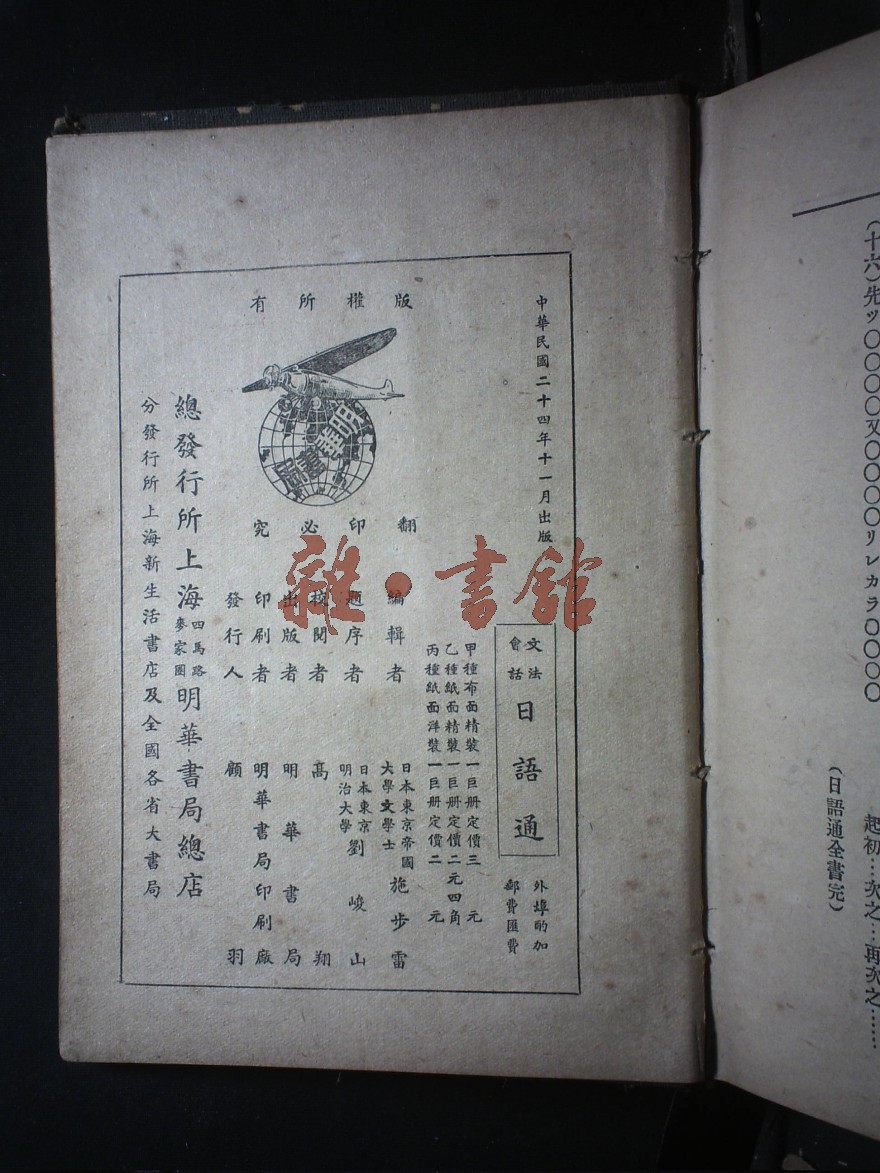 (十六)先ッ〇〇〇〇又〇〇〇〇リレカラ〇〇〇〇
起初…次之…再次之……
(日語通全書完)
中華民國二十四年十一月出版
文法
會話
日語通
外埠酌加
郵費匯費
甲種布面精裝一巨册定價三元
乙種紙面精裝一巨册定價二元四角
丙種紙面洋裝一巨册定價二元
版權所有
明華書局
翻印必究
編輯者 日本東京帝國大學文學士 施步雷
題序者 日本東京明治大學 劉峻山
校閱者 高翔
出版者 明華書局
印刷者 明華書局印刷廠
發行人 顧羽
總發行所上海四馬路麥家圈明華書局總店
分發行所上海新生活書店及全國各省大書局
雜·書館